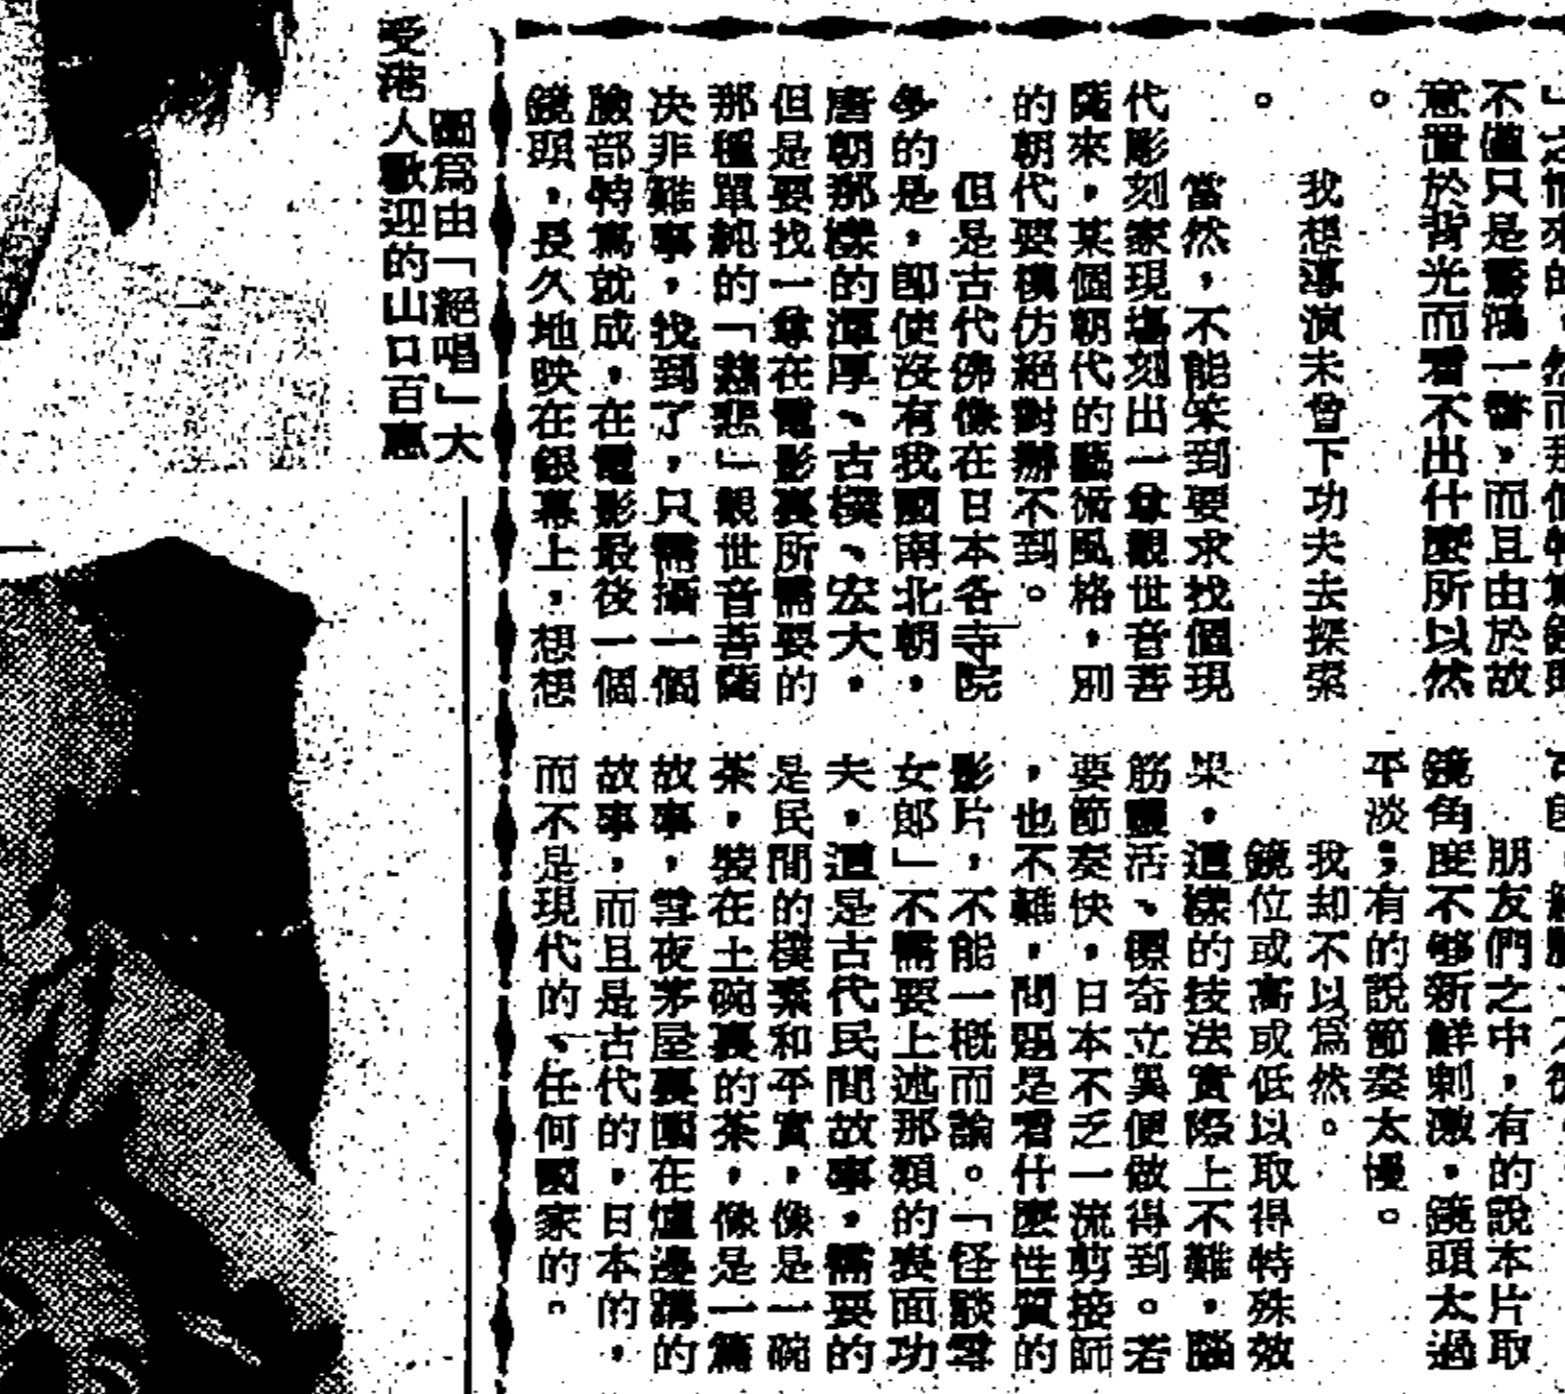 不僅只是驚鴻一瞥，而且由於故
意置於背光而看不出什麼所以然
。
我想導演未曾下功夫去探索
。
當然，不能笨到要求找個現
代彫刻家現場刻出一尊觀世音菩
薩來，某個朝代的藝術風格，別
的朝代要模仿絕對辦不到。
但是古代佛像在日本各寺院
多的是，即使沒有我國南北朝，
唐朝那樣的渾厚、古樸、宏大，
但是要找一尊在電影裏所需要的
那種單純的「慈悲」觀世音菩薩
决非難事，找到了，只需攝一個
臉部特寫就成，在電影最後一個
鏡頭，長久地映在銀幕上，想想
朋友們之中，有的說本片取
鏡角度不够新鮮刺激，鏡頭太過
平淡；有的說節奏太慢。
我却不以爲然。
鏡位或高或低以取得特殊效
果，這樣的技法實際上不難，腦
筋靈活、標奇立異便做得到。若
要節奏快，日本不乏一流剪接師
，也不難，問題是看什麼性質的
影片，不能一概而論。「怪談雪
女郎」不需要上述那類的表面功
夫，這是古代民間故事，需要的
是民間的樸素和平實，像是一碗
茶，裝在土碗裏的茶，像是一篇
故事，雪夜茅屋裏圍在爐邊講的
故事，而且是古代的，日本的，
而不是現代的、任何國家的。
圖爲由「絕唱」大
受港人歡迎的山口百惠